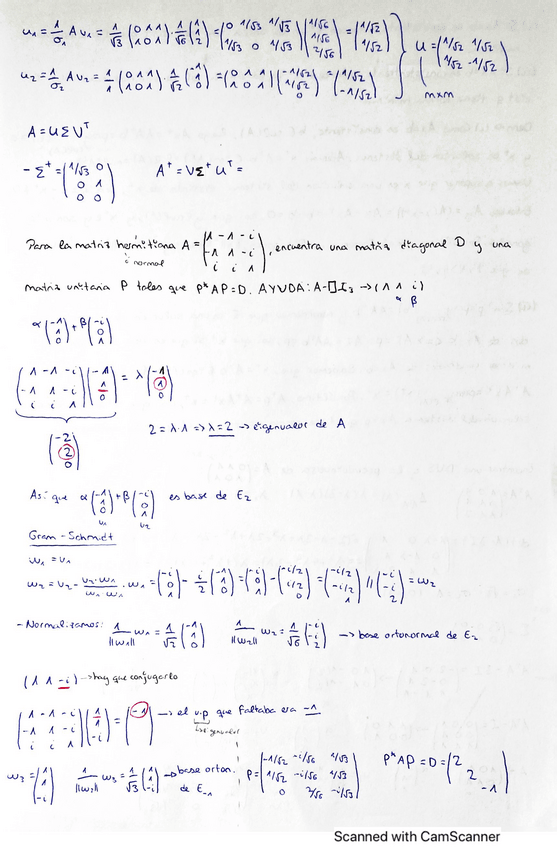 u₁ = 1/σ₁ A v₁ = 1/√3 (0 1 1; 1 0 1) · 1/√6 (1; 1; 2) = (0 1/√3 1/√3; 1/√3 0 1/√3) (1/√6; 1/√6; 2/√6) = (1/√2; 1/√2)
u₂ = 1/σ₂ A v₂ = 1/1 (0 1 1; 1 0 1) · 1/√2 (-1; 1; 0) = (0 1 1; 1 0 1) (-1/√2; 1/√2; 0) = (1/√2; -1/√2)
U = (1/√2 1/√2; 1/√2 -1/√2)
m×m
A = U Σ Vᵀ
- Σ⁺ = (1/√3 0; 0 1; 0 0) A⁺ = V Σ⁺ Uᵀ =
Para la matriz hermitiana A = (1 -1 -i; -1 1 -i; i i 1), encuentra una matriz diagonal D y una
normal
matriz unitaria P tales que P*AP = D. AYUDA: A-□I₃ → (1 1 i)
α β
α(-1; 1; 0) + β(-i; 0; 1)
(1 -1 -i; -1 1 -i; i i 1) (-1; 1; 0) = λ (-1; 1; 0)
(-2; 2; 0)
2 = λ·1 => λ = 2 → eigenvalor de A
Así que α(-1; 1; 0) + β(-i; 0; 1) es base de E₂
v₁ v₂
Gram-Schmidt
w₁ = v₁
w₂ = v₂ - (v₂·w₁)/(w₁·w₁) · w₁ = (-i; 0; 1) - i/2 (-1; 1; 0) = (-i; 0; 1) - (-i/2; i/2; 0) = (-i/2; -i/2; 1) // (-i; -i; 2) = w₂
- Normalizamos: 1/||w₁|| w₁ = 1/√2 (-1; 1; 0) 1/||w₂|| w₂ = 1/√6 (-i; -i; 2) → base ortonormal de E₂
(1 1 -i) → hay que conjugarlo
(1 -1 -i; -1 1 -i; i i 1) (1; 1; -i) = (-1) → el v.p que faltaba era -1
eigenvalor
w₃ = (1; 1; -i) 1/||w₃|| w₃ = 1/√3 (1; 1; -i) → base orton. de E₋₁ P = (-1/√2 -i/√6 1/√3; 1/√2 -i/√6 1/√3; 0 2/√6 -i/√3) P*AP = D = (2; 2; -1)
Scanned with CamScanner